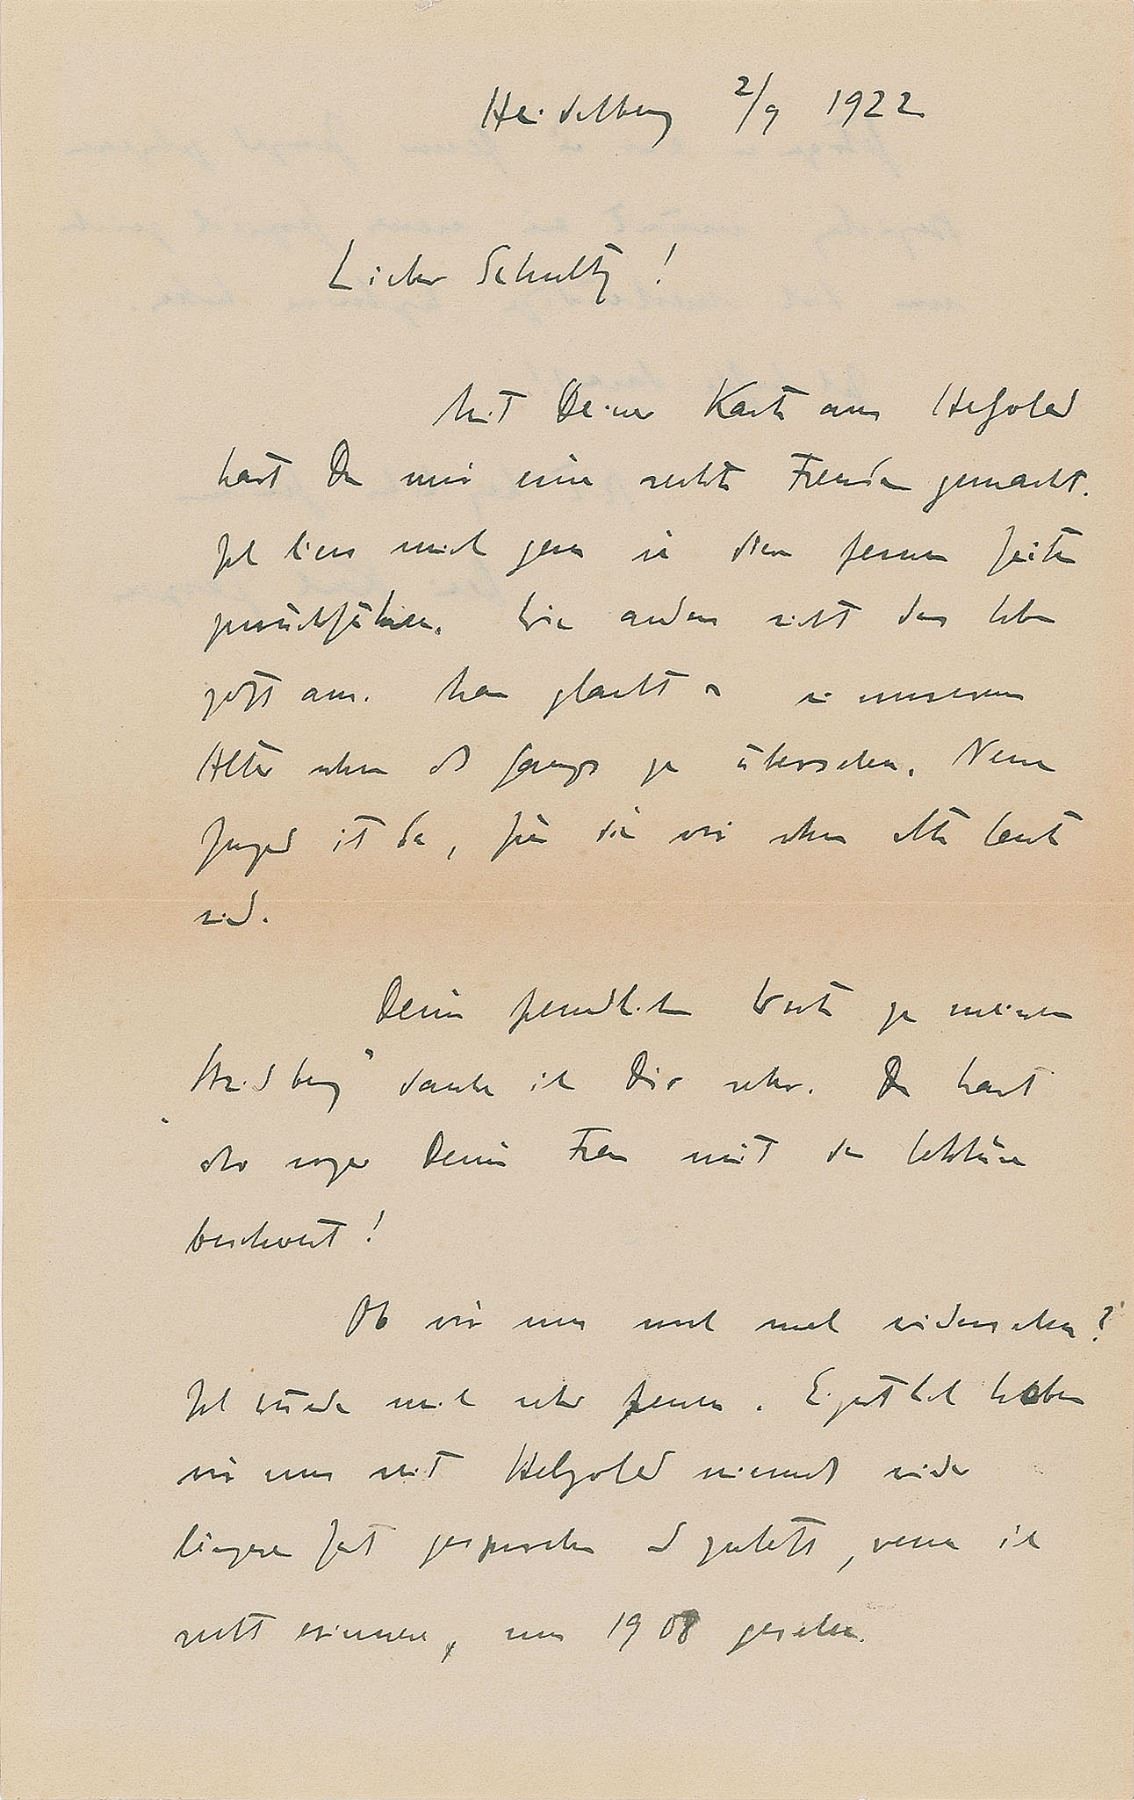 Heidelberg 2/9 1922
Lieber Schultz!
Mit Deiner Karte aus Helgoland
hast Du mir eine rechte Freude gemacht.
Ich liess mich gern in diese fernen Zeiten
zurückführen. Wie anders sieht das Leben
jetzt aus. Man glaubt es in unserem
Alter schon als Ganzes zu übersehen. Neue
Jugend ist da, für die wir schon alte Leute
sind.
Deine freundlichen Worte zu meinem
"Strindberg" danke ich Dir sehr. Du hast
aber sogar Deine Frau mit der Lektüre
beschwert!
Ob wir uns noch mal wiedersehen?
Ich würde mich sehr freuen. Eigentlich haben
wir uns seit Helgoland niemals wieder
längere Zeit gesprochen und zuletzt, wenn ich
recht erinnere, uns 1908 gesehen.